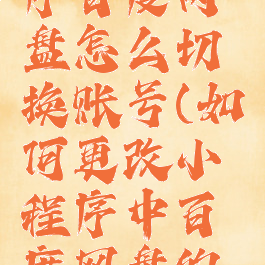 序百度网
盘怎么切
换账号(如
何更改小
程序中百
度网盘的